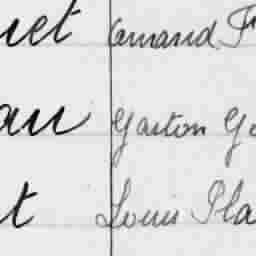 uet Armand F
au Gaston Ge
t Louis Pla